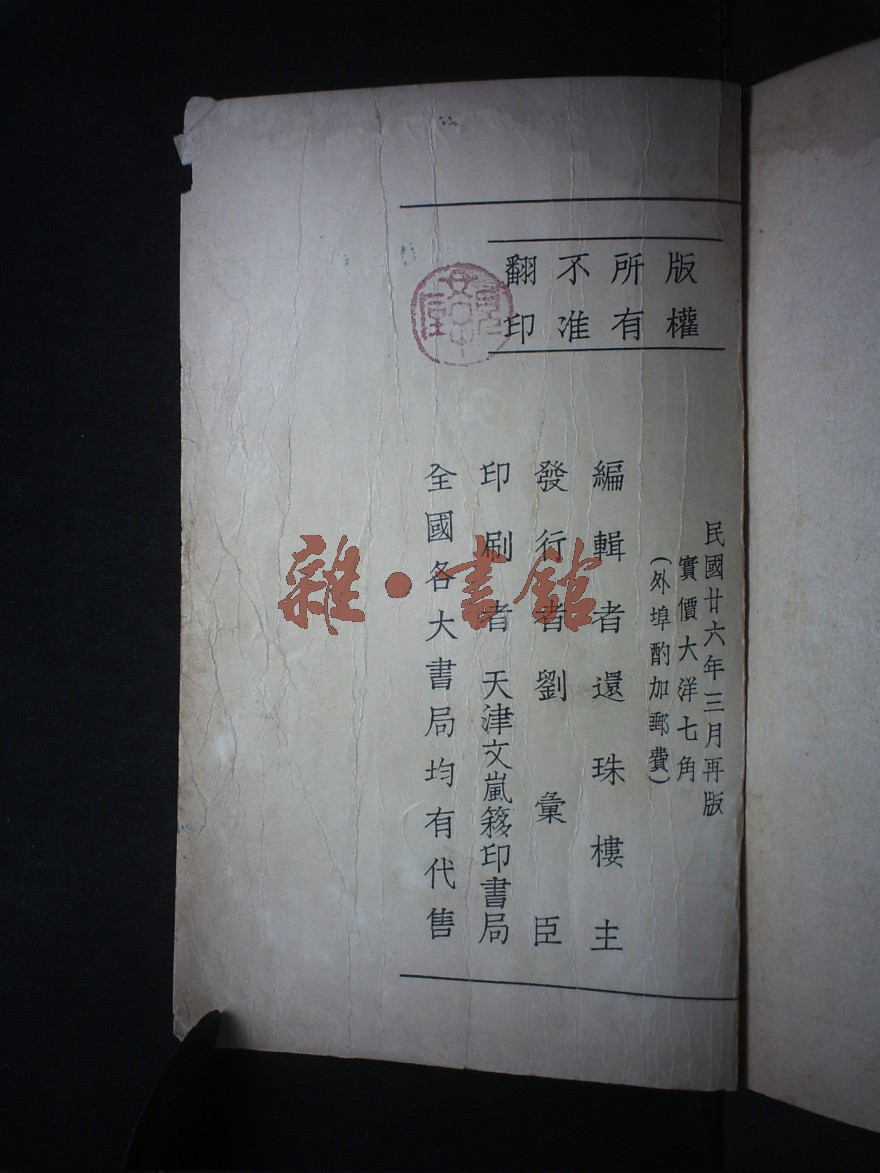 版權
所有
不准
翻印
民國廿六年三月再版
實價大洋七角
(外埠酌加郵費)
編輯者還珠樓主
發行者劉彙臣
印刷者天津文嵐簃印書局
全國各大書局均有代售
雜·書館